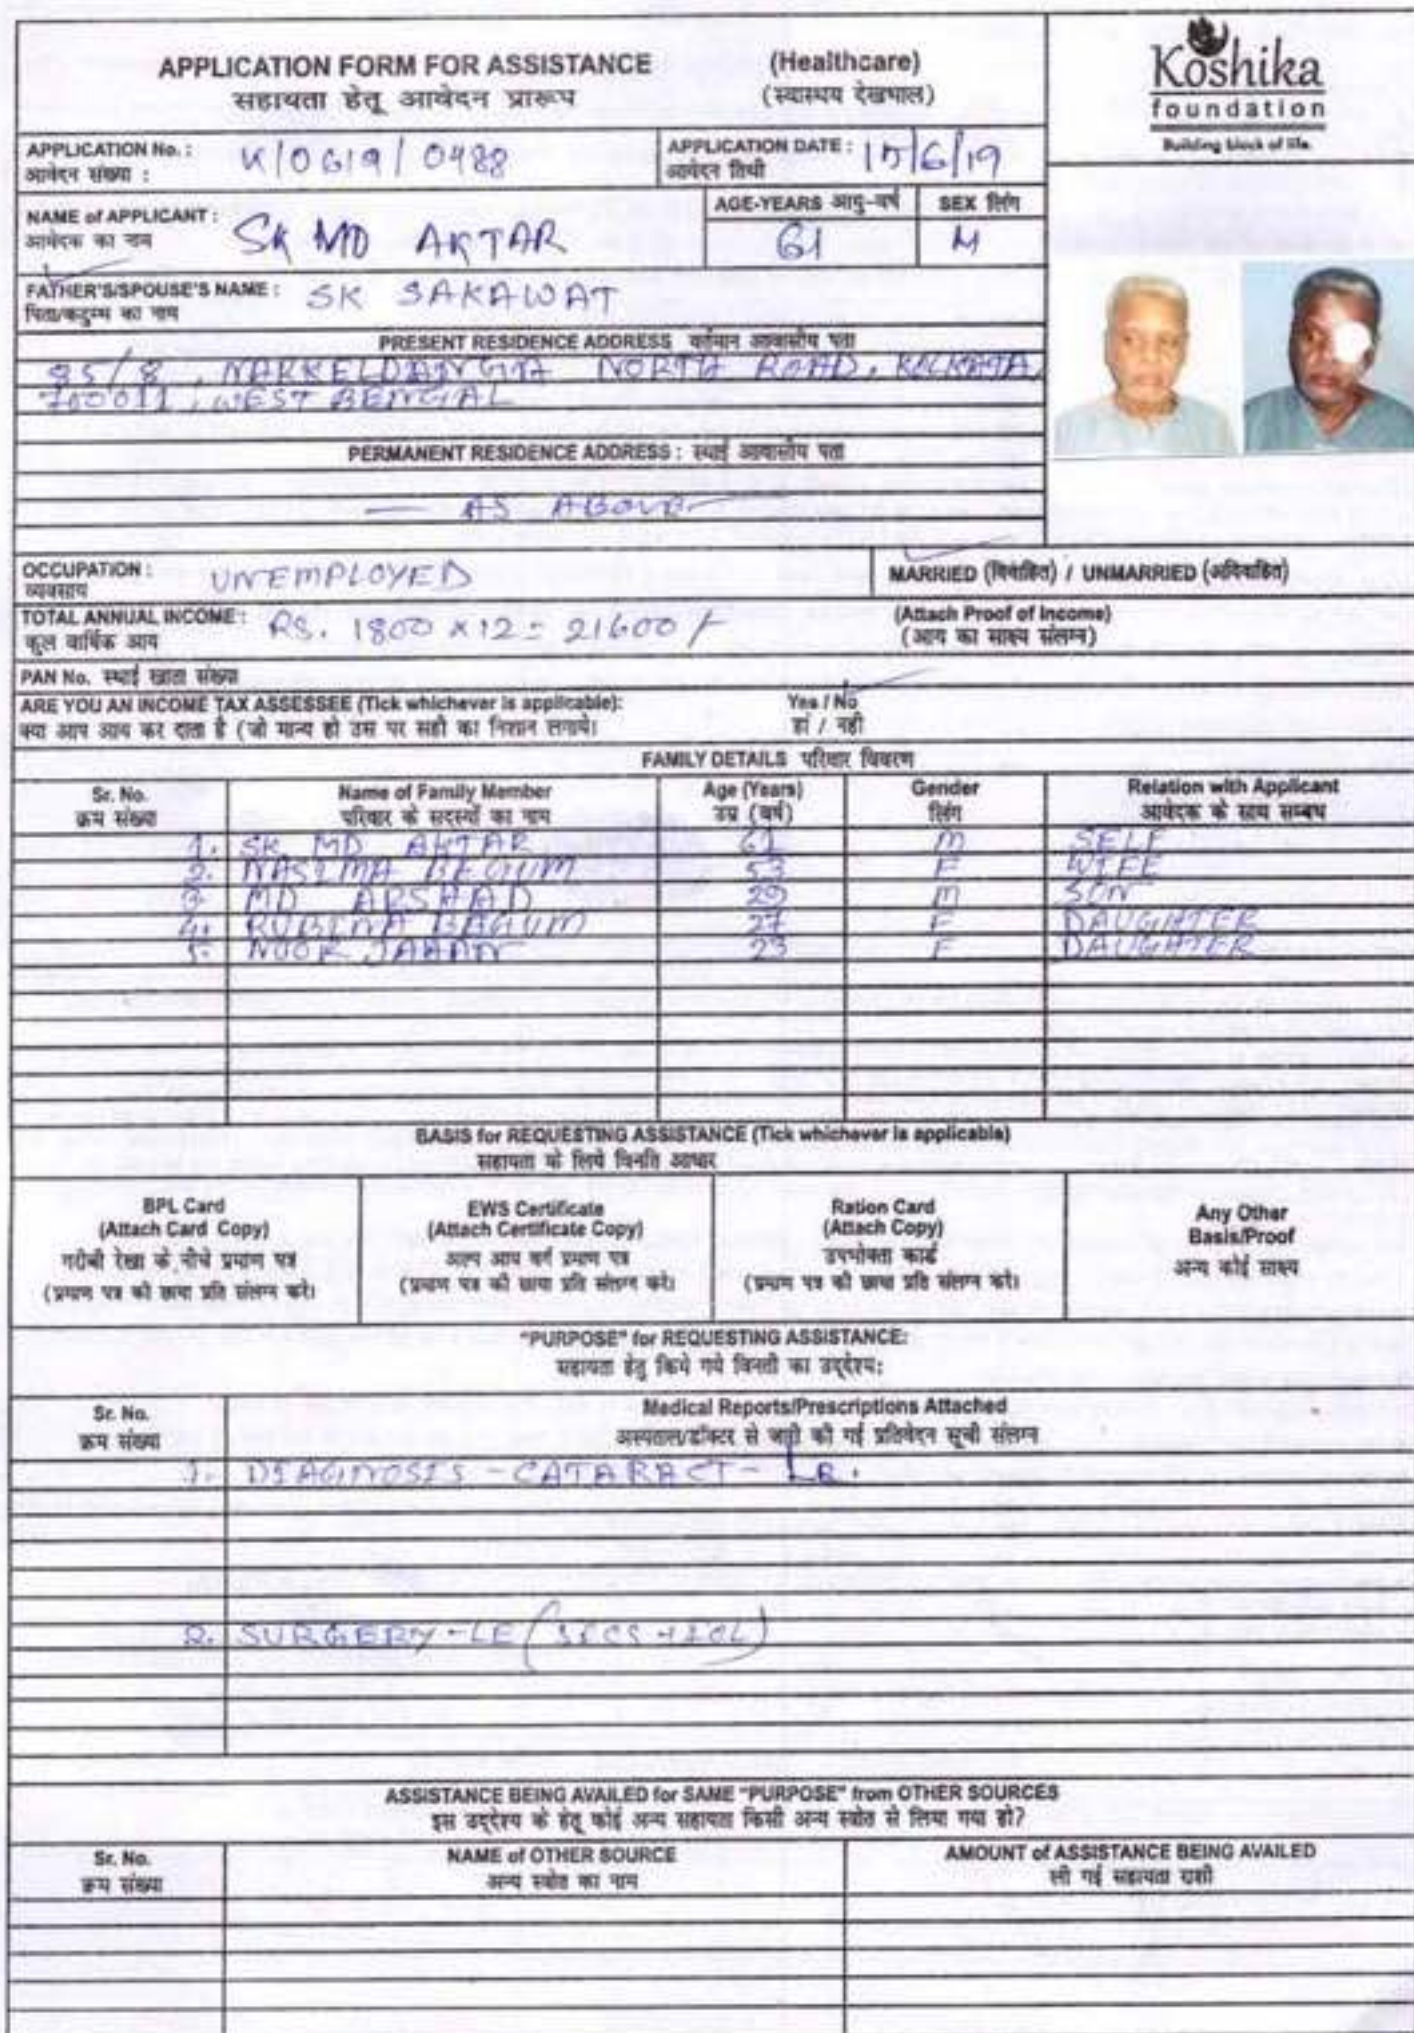 APPLICATION FORM FOR ASSISTANCE (Healthcare)
सहायता हेतू आवेदन प्रारूप (स्वास्थय देखभाल)
Koshika
foundation
Building block of life.
APPLICATION No. : K/0619/0488
आवेदन संख्या :
APPLICATION DATE : 15/6/19
आवेदन तिथी
NAME of APPLICANT : SK MD AKTAR
आवेदक का नाम
AGE-YEARS आयु-वर्ष SEX लिंग
61 M
FATHER'S/SPOUSE'S NAME : SK SAKAWAT
पिता/कटुम्ब का नाम
PRESENT RESIDENCE ADDRESS वर्तमान आवासीय पता
NORTH ROAD, KOLKATA,
700011, WEST BENGAL
PERMANENT RESIDENCE ADDRESS : स्थाई आवासीय पता
— AS ABOVE —
OCCUPATION : UNEMPLOYED
व्यवसाय
MARRIED (विवाहित) / UNMARRIED (अविवाहित)
TOTAL ANNUAL INCOME : RS. 1800 x 12 = 21600/-
कुल वार्षिक आय
(Attach Proof of Income)
(आय का साक्ष्य संलग्न)
PAN No. स्थाई खाता संख्या
ARE YOU AN INCOME TAX ASSESSEE (Tick whichever is applicable): Yes / No
क्या आप आय कर दाता है (जो मान्य हो उस पर सही का निशान लगाये। हां / नही
FAMILY DETAILS परिवार विवरण
Sr. No. Name of Family Member Age (Years) Gender Relation with Applicant
क्रम संख्या परिवार के सदस्यों का नाम उम्र (वर्ष) लिंग आवेदक के साथ सम्बध
1. SK MD AKTAR 61 M SELF
2. NASIMA BEGUM 53 F WIFE
3. MD ARSHAD 29 M SON
4. RUBINA BEGUM 27 F DAUGHTER
5. NOOR JAHAN 23 F DAUGHTER
BASIS for REQUESTING ASSISTANCE (Tick whichever is applicable)
सहायता के लिये विनति आधार
BPL Card
(Attach Card Copy)
गरीबी रेखा के नीचे प्रमाण पत्र
(प्रमाण पत्र की छाया प्रति संलग्न करे।
EWS Certificate
(Attach Certificate Copy)
अल्प आय वर्ग प्रमाण पत्र
(प्रमाण पत्र की छाया प्रति संलग्न करे।
Ration Card
(Attach Copy)
उपभोक्ता कार्ड
(प्रमाण पत्र की छाया प्रति संलग्न करे।
Any Other
Basis/Proof
अन्य कोई साक्ष्य
"PURPOSE" for REQUESTING ASSISTANCE:
सहायता हेतु किये गये विनती का उद्देश्य:
Sr. No. Medical Reports/Prescriptions Attached
क्रम संख्या अस्पताल/डॉक्टर से जारी की गई प्रतिवेदन सूची संलग्न
1. DIAGNOSIS - CATARACT - LE.
2. SURGERY - LE (SICS + IOL)
ASSISTANCE BEING AVAILED for SAME "PURPOSE" from OTHER SOURCES
इस उद्देश्य के हेतू कोई अन्य सहायता किसी अन्य स्त्रोत से लिया गया हो?
Sr. No. NAME of OTHER SOURCE AMOUNT of ASSISTANCE BEING AVAILED
क्रम संख्या अन्य स्त्रोत का नाम ली गई सहायता राशी